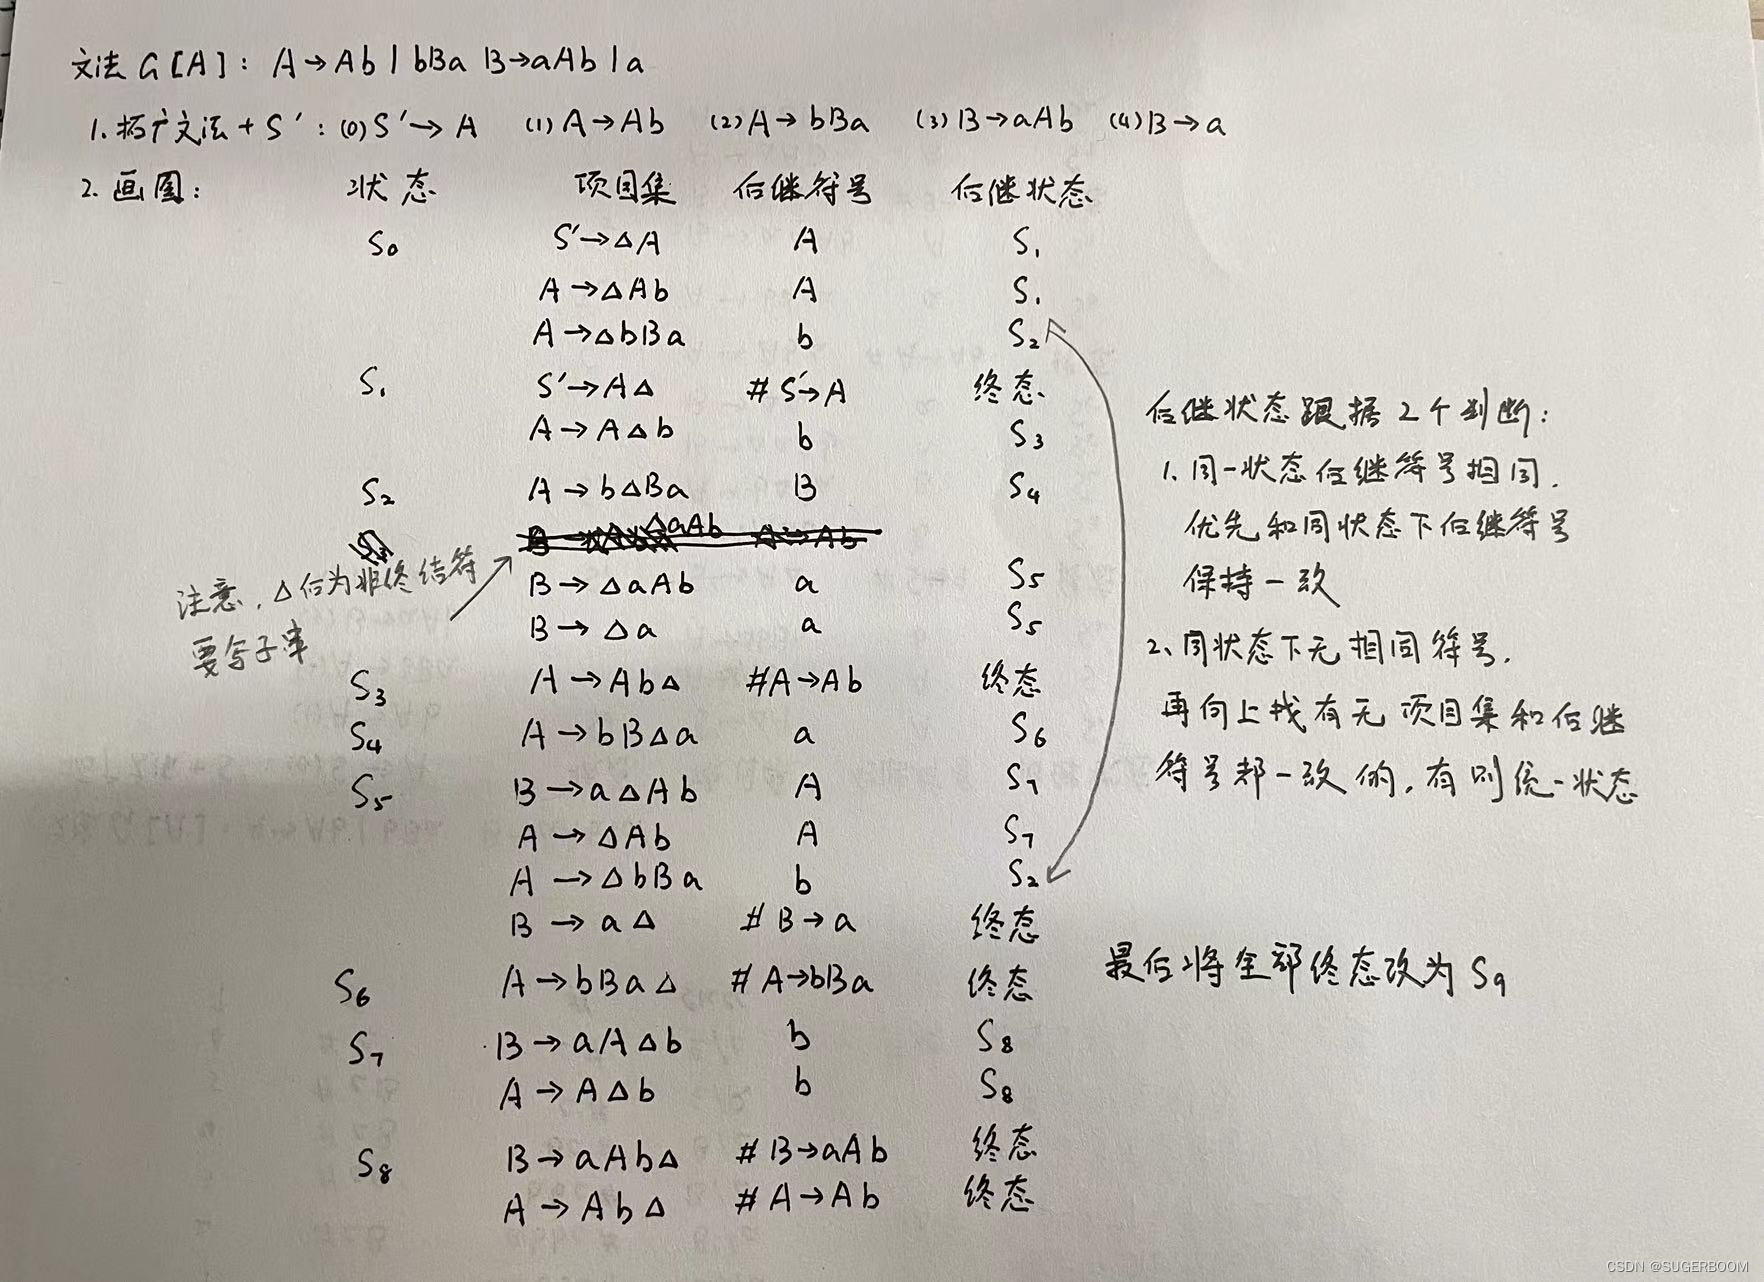 文法 G[A]: A→Ab | bBa B→aAb | a
1.拓广文法+S': (0)S'→A (1)A→Ab (2)A→bBa (3)B→aAb (4)B→a
2.画图: 状态 项目集 后继符号 后继状态
S0 S'→ΔA A S1
A→ΔAb A S1
A→ΔbBa b S2
S1 S'→AΔ #S'→A 终态
A→AΔb b S3
S2 A→bΔBa B S4
B→ΔaAb a S5
B→Δa a S5
注意,Δ后为非终结符
要写子串
S3 A→AbΔ #A→Ab 终态
S4 A→bBΔa a S6
S5 B→aΔAb A S7
A→ΔAb A S7
A→ΔbBa b S2
B→aΔ #B→a 终态
S6 A→bBaΔ #A→bBa 终态
S7 B→aAΔb b S8
A→AΔb b S8
S8 B→aAbΔ #B→aAb 终态
A→AbΔ #A→Ab 终态
后继状态跟据2个判断:
1.同一状态后继符号相同.
优先和同状态下后继符号
保持一致
2、同状态下无相同符号.
再向上找有无项目集和后继
符号都一致的,有则统一状态
最后将全部终态改为S9
CSDN @SUGERBOOM